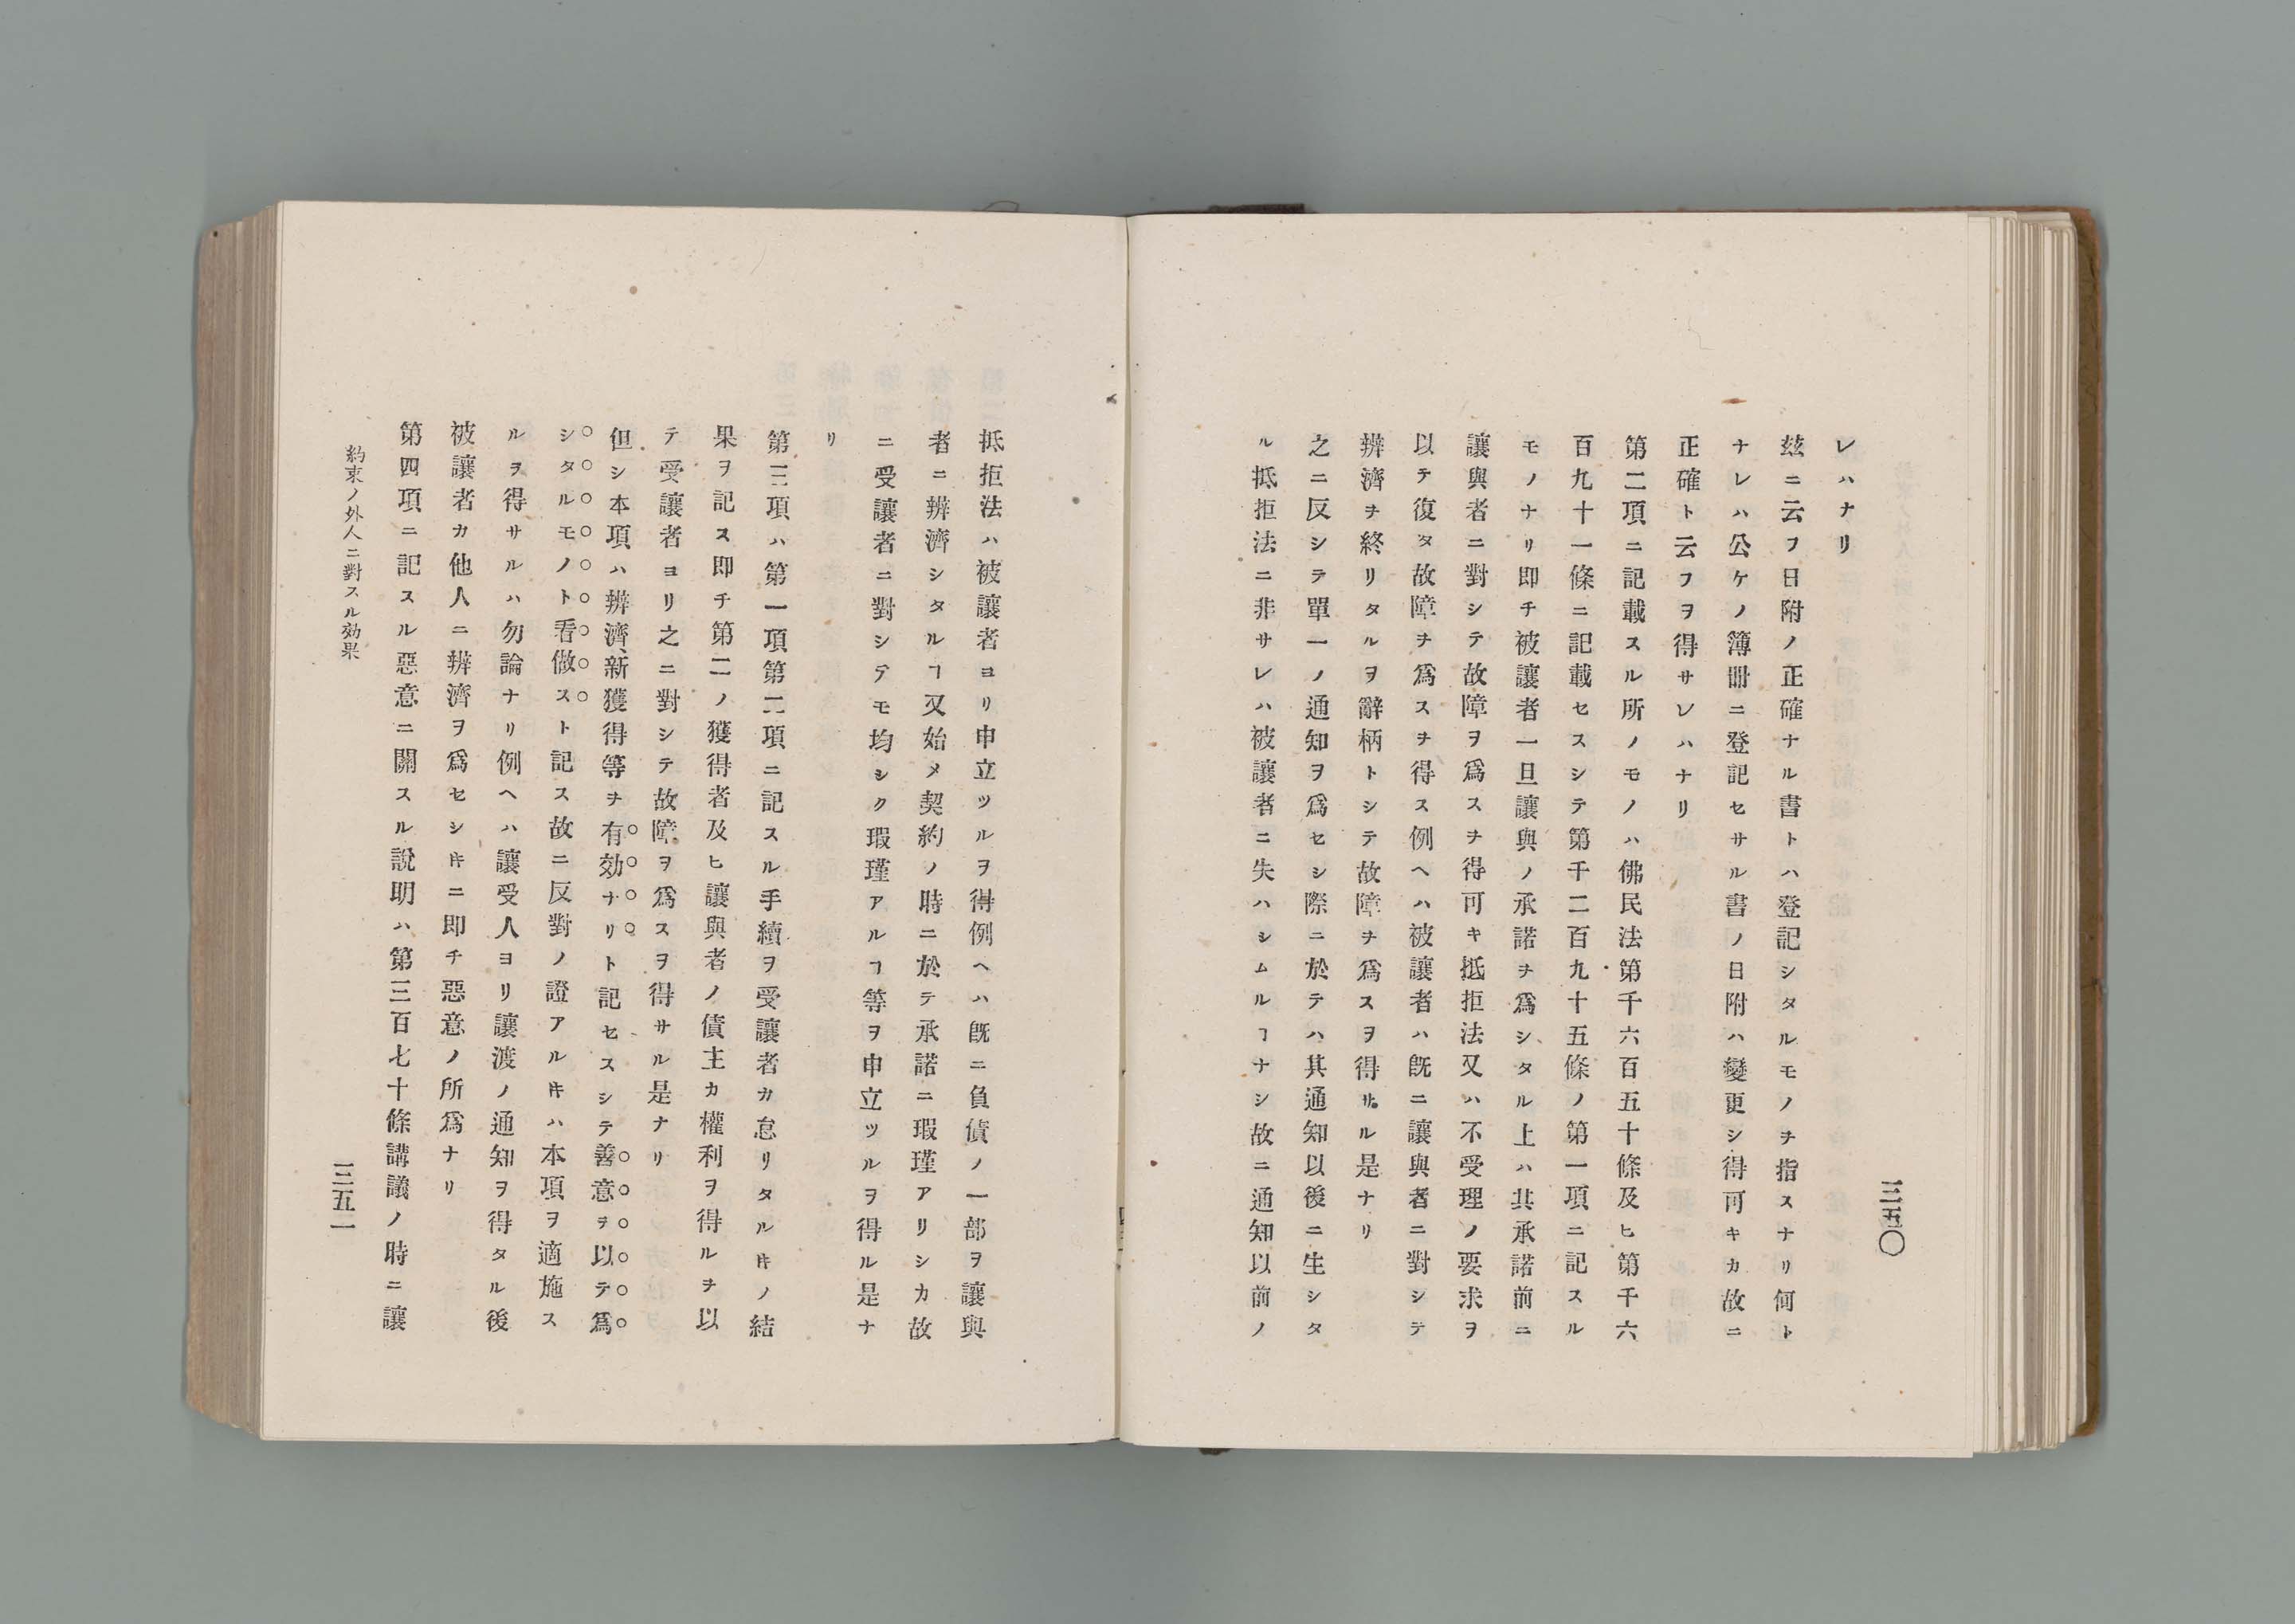 三五〇
レハナリ
玆ニ云フ日附ノ正確ナル書トハ登記シタルモノヲ指スナリ何ト
ナレハ公ケノ簿冊ニ登記セサル書ノ日附ハ變更シ得可キカ故ニ
正確ト云フヲ得サレハナリ
第二項ニ記載スル所ノモノハ佛民法第千六百五十條及ヒ第千六
百九十一條ニ記載セスシテ第千二百九十五條ノ第一項ニ記スル
モノナリ即チ被讓者一旦讓與ノ承諾ヲ爲シタル上ハ其承諾前ニ
讓與者ニ對シテ故障ヲ爲スヲ得可キ抵拒法又ハ不受理ノ要求ヲ
以テ復タ故障ヲ爲スヲ得ス例ヘハ被讓者ハ既ニ讓與者ニ對シテ
辨濟ヲ終リタルヲ辭柄トシテ故障ヲ爲スヲ得サル是ナリ
之ニ反シテ單一ノ通知ヲ爲セシ際ニ於テハ其通知以後ニ生シタ
ル抵拒法ニ非サレハ被讓者ニ失ハシムルヿナシ故ニ通知以前ノ
抵拒法ハ被讓者ヨリ申立ツルヲ得例ヘハ既ニ負債ノ一部ヲ讓與
者ニ辨濟シタルヿ又始メ契約ノ時ニ於テ承諾ニ瑕瑾アリシカ故
ニ受讓者ニ對シテモ均シク瑕瑾アルヿ等ヲ申立ツルヲ得ル是ナ
リ
第三項ハ第一項第二項ニ記スル手續ヲ受讓者カ怠リタルキノ結
果ヲ記ス即チ第二ノ獲得者及ヒ讓與者ノ債主カ權利ヲ得ルヲ以
テ受讓者ヨリ之ニ對シテ故障ヲ爲スヲ得サル是ナリ
但シ本項ハ辨濟、新獲得等ヲ有効ナリト記セスシテ善意ヲ以テ爲
シタルモノト看做スト記ス故ニ反對ノ證アルキハ本項ヲ適施ス
ルヲ得サルハ勿論ナリ例ヘハ讓受人ヨリ讓渡ノ通知ヲ得タル後
被讓者カ他人ニ辨濟ヲ爲セシキニ即チ惡意ノ所爲ナリ
第四項ニ記スル惡意ニ關スル說明ハ第三百七十條講議ノ時ニ讓
約束ノ外人ニ對スル効果
三五一